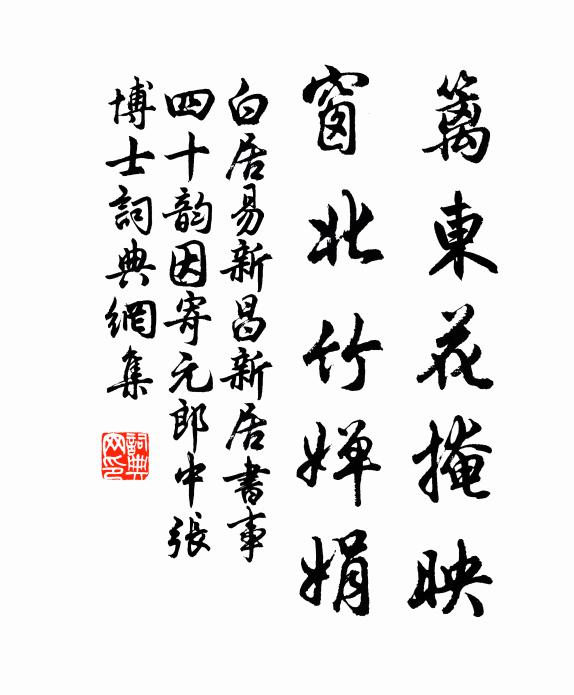 籬東花掩映
窗北竹嬋娟
白居易新昌新居書事
四十韵因寄元郎中張
博士詞典網集
詞典网印